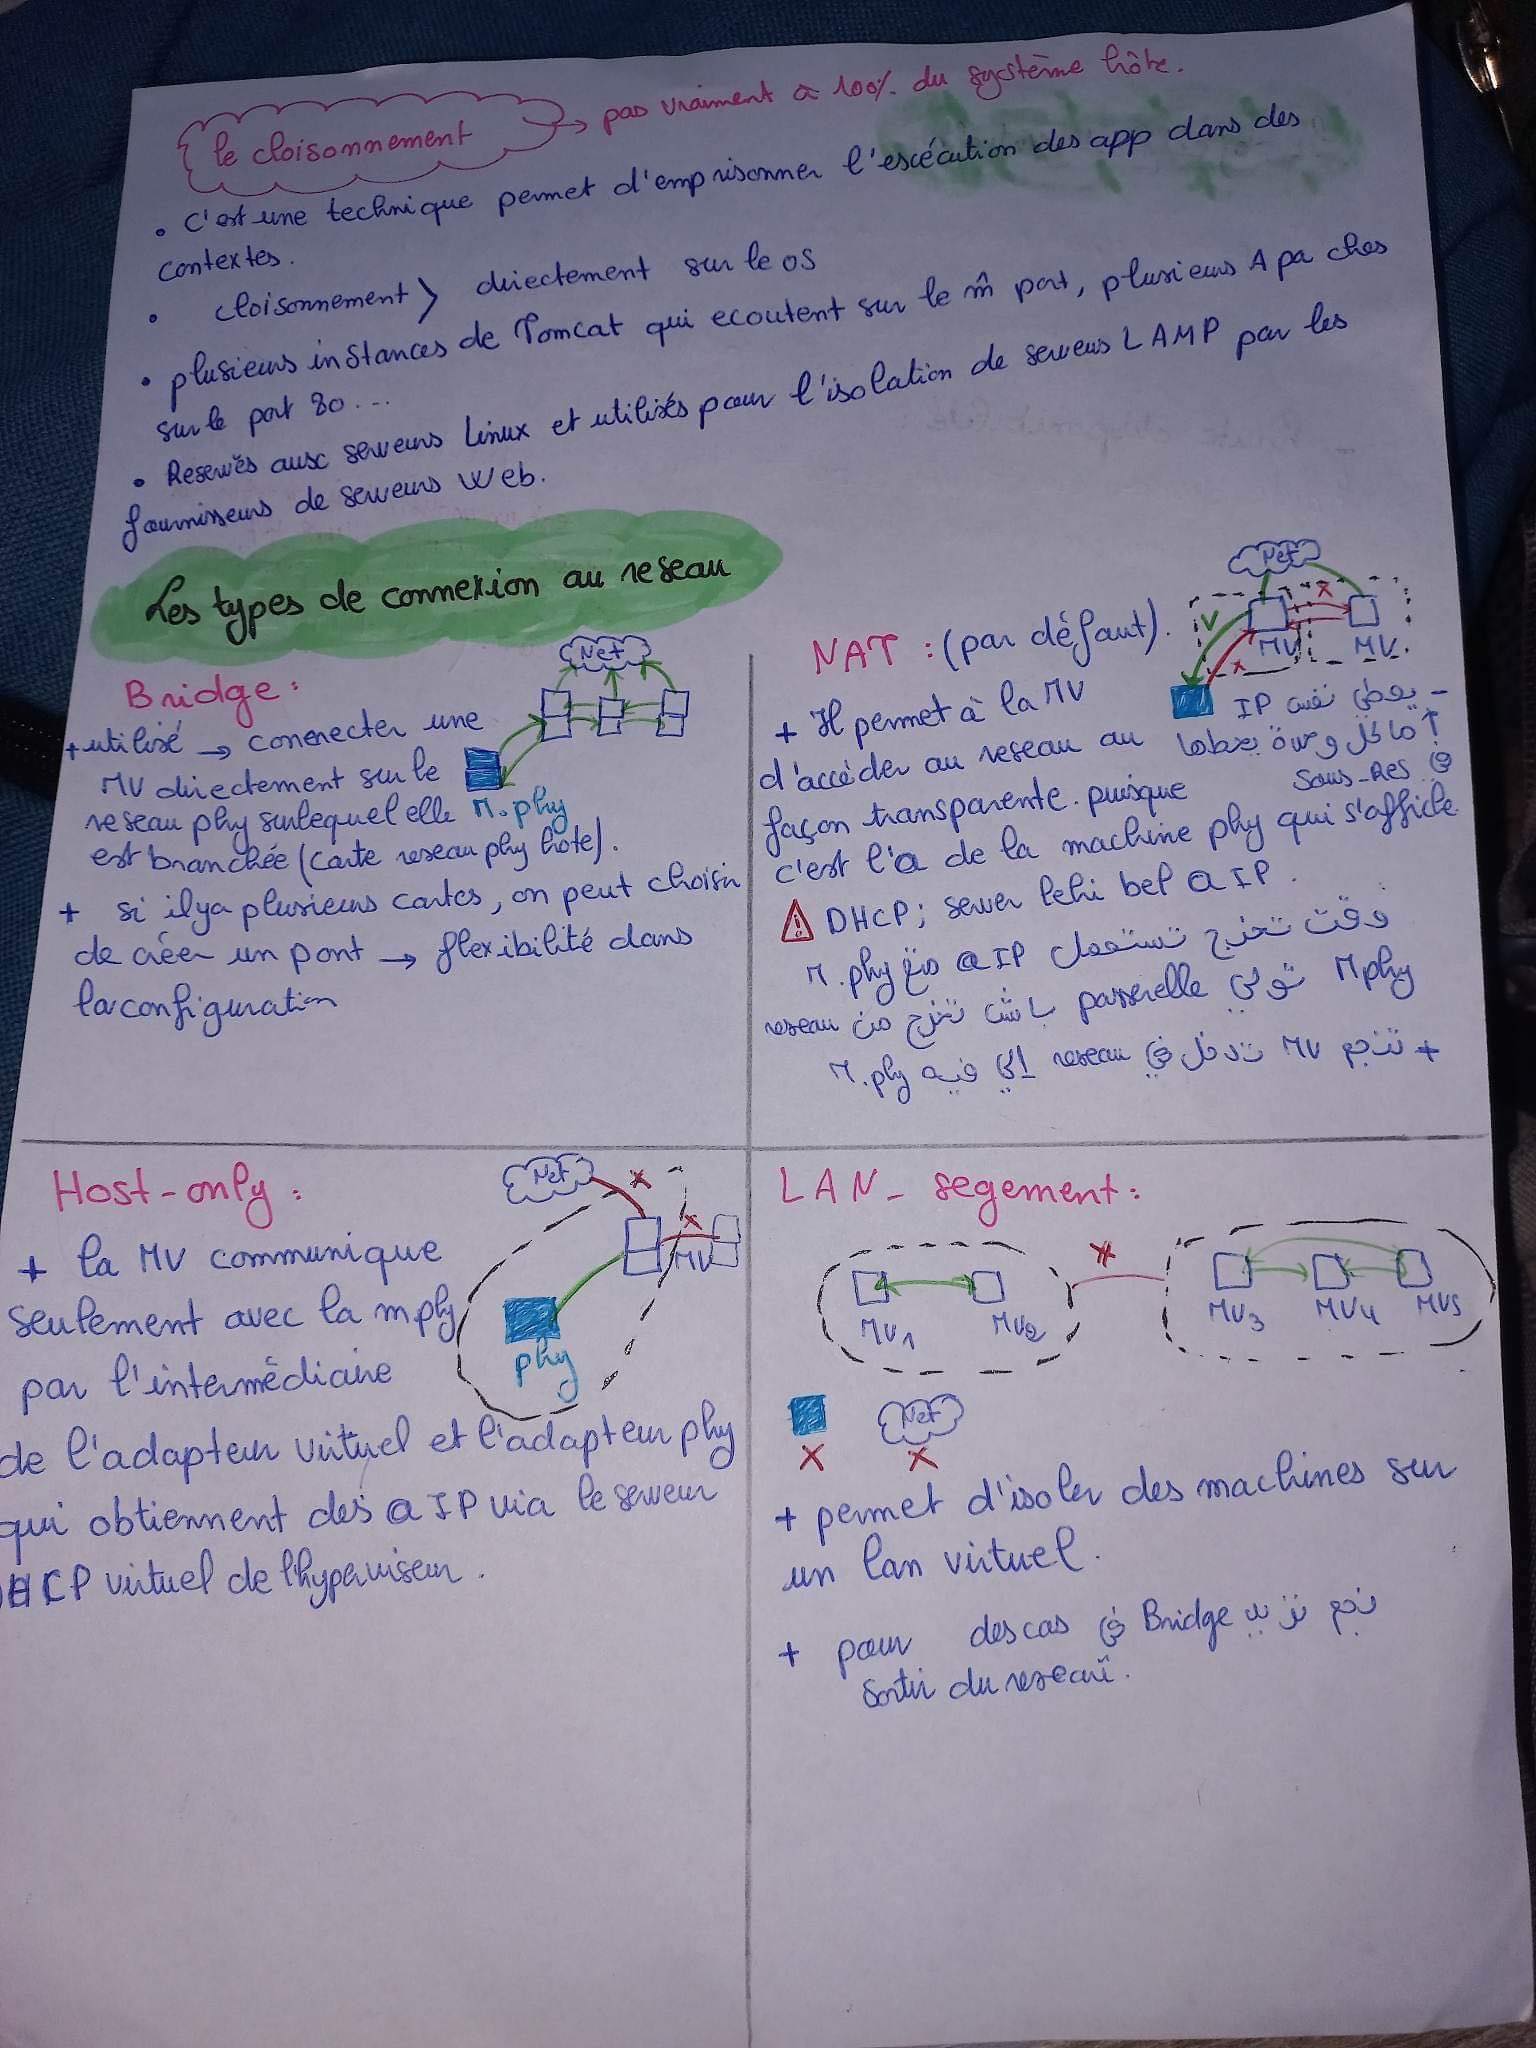 le cloisonnement → pas vraiment à 100% du système hôte.
• c'est une technique permet d'emprisonner l'exécution des app dans des
contextes.
• cloisonnement > directement sur le os
• plusieurs instances de Tomcat qui ecoutent sur le m̂ port, plusieurs Apaches
sur le port 80...
• Reservés aux serveurs Linux et utilisés pour l'isolation de serveurs LAMP par les
fournisseurs de serveurs Web.
Les types de connexion au reseau
Bridge :
Net
+ utilisé → connecter une
MV directement sur le
reseau phy surlequel elle
M. phy
est branchée (carte reseau phy hôte).
+ si ilya plusieurs cartes, on peut choisir
de créer un pont → flexibilité dans
la configuration
NAT : (par défaut).
Net
V
X
X
MV
MV
+ Il permet à la MV
d'accéder au reseau au
façon transparente. puisque
c'est l'@ de la machine phy qui s'affiche
- يعطي نفس IP
أما كل وحدة يحطها
في Sous-Res
⚠ DHCP ; serveur lehi bel @ IP.
وقت تخرج تستعمل @ IP متع M. phy
Mphy تولي passerelle باش تخرج من reseau
+ تنجم MV تدخل في reseau إلي فيه M. phy
Host-only :
Net
X
X
MV
phy
+ la MV communique
seulement avec la mphy
par l'intermédiaire
de l'adapteur virtuel et l'adapteur phy
qui obtiennent des @ IP via le serveur
DHCP virtuel de l'hyperviseur.
LAN- segement :
MV1
MV2
X
MV3
MV4
MV5
Net
X
X
+ permet d'isoler des machines sur
un lan virtuel.
+ pour des cas في Bridge نجم نزيد
sortir du reseau.